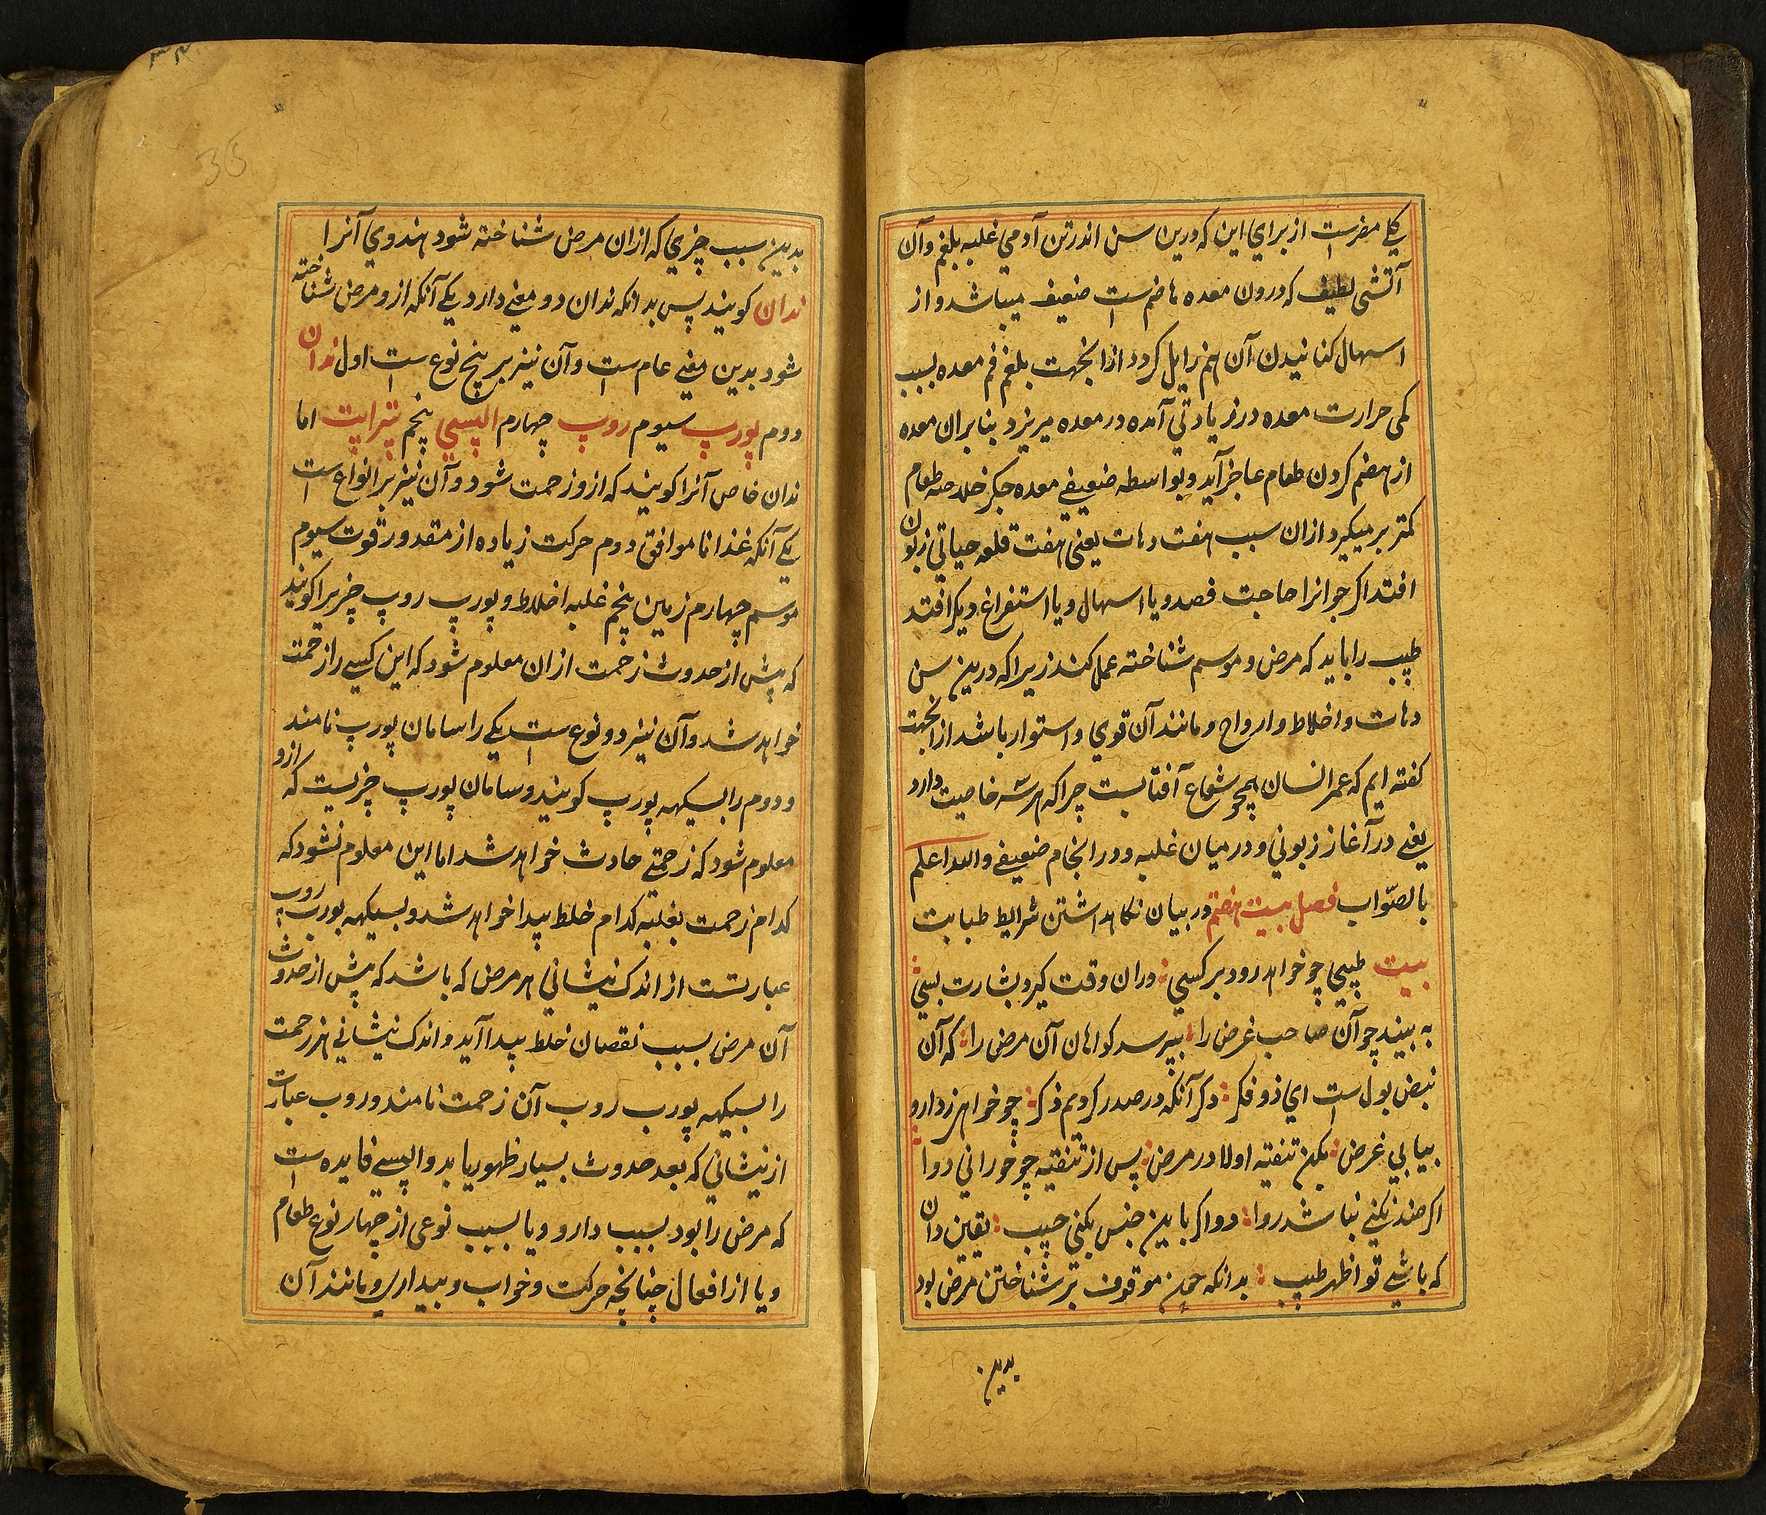 یکی مضر است از برای این که درین سن اندر تن آدمی غلبه بلغم و آن
آتشی لطیف که درون معده هاضم است ضعیف میباشد و از
اسهال کنانیدن آن هم زایل گردد ازانجهت بلغم فم معده بسبب
کمی حرارت معده در زیادتی آمده در معده میریزد بنابران معده
از هضم کردن طعام عاجز آید و بواسطه ضعیفی معده جگر خلاصه طعام
کمتر بر میگیرد ازان سبب هفت دهات یعنی هفت قلعه حیاتی زبون
افتد اگر جوانرا حاجت فصد و یا اسهال و یا استفراغ دیگر افتد
طبیب را باید که مرض و موسم شناخته عمل کند زیرا که درین سن
دهات و اخلاط و ارواح و مانند آن قوی و استوار باشد ازانجهت
گفته ایم که عمر انسان همچو شعاع آفتابست چرا که هر سه خاصیت دارد
یعنی در آغاز زبونی و در میان غلبه و در انجام ضعیفی والله اعلم
بالصواب فصل بیست هفتم در بیان نگاهداشتن شرایط طبابت
بیت طبیبی چو خواهد رود بر کسی دران وقت گیرد بشارت بسی
به بیند چو آن صاحب غرض را بپرسد گواهان آن مرض را که آن
نبض بول است ای ذو فکر دگر آنکه در صدر کردیم ذکر چو خواهی ز دارو
بیابی غرض بکن تنقیه اولا در مرض پس از تنقیه چو خورانی دوا
اگر ضد نکنی نباشد روا دوا گر باین جنس بکنی حبیب یقین دان
که باشی تو اظهر طبیب بدانکه موقوف بر شناختن مرض بود
بدین
بدین سبب چیزی که ازان مرض شناخته شود هندوی آنرا
ندان گویند پس بدانکه ندان دو معنی دارد یکی آنکه ازو مرض شناخته
شود بدین معنی عام است و آن نیز بر پنج نوع است اول ندان
دوم پورپ سیوم روپ چهارم اپسی پنجم پتراپت اما
ندان خاص آنرا گویند که ازو زحمت شود و آن نیز بر انواع است
یکی آنکه غذا ناموافق دوم حرکت زیاده از مقدور قوت سیوم
موسم چهارم زمین پنجم غلبه اخلاط و پورپ روپ چیزیرا گویند
که پیش از حدوث زحمت ازان معلوم شود که این کسی را زحمت
خواهد شد و آن نیز دو نوع است یکی را سامان پورپ نامند
و دوم را بسیکهه پورپ گویند و سامان پورپ چیزیست که ازو
معلوم شود که زحمتی حادث خواهد شد اما این معلوم نشود که
کدام زحمت بغلبه کدام خلط پیدا خواهد شد و بسیکهه پورب روپ
عبارتست از اندک نیشانی هر مرض که باشد که پیش از حدوث
آن مرض بسبب نقصان خلط پیدا آید و اندک نیشانی هر زحمت
را بسیکهه پورب روب آن زحمت نامند و روب عبارت
از نیشانی که بعد حدوث بسیار ظهور یابد و اپسی فایده است
که مرض را بود بسبب دارو و یا بسبب نوعی از چهار نوع طعام
و یا از افعال چنانچه حرکت و خواب و بیداری و مانند آن